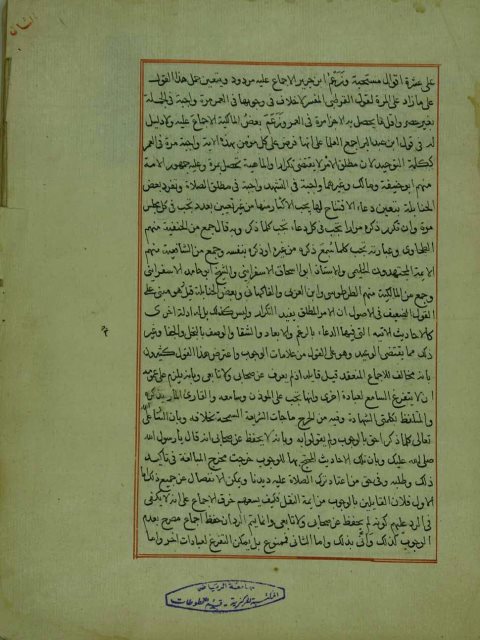 على عشرة اقوال مستحبة وزعم ابن جرير الاجماع عليه مردود ويتعين حمل هذا القول
على ما زاد على المرة لقول القرطبي المفسر لا خلاف في وجوبها في العمر مرة واجبة في الجملة
بغير حصر واقل ما يحصل به الاجزا مرة في العمر وزعم بعض المالكية الاجماع عليه ولا دليل
له في قول ابن عبد البر اجمع العلما على انها فرض على كل مؤمن بهذه الاية واجبة مرة في العمر
ككلمة التوحيد لان مطلق الامر لا يقتضي تكرارا والماهية تحصل بمرة وعليه جمهور الامة
منهم ابو حنيفة ومالك وغيرهما واجبة في التشهد واجبة في مطلق الصلاة وتفرد بعض
الحنابلة بتعين دعاء الافتتاح لها يجب الاكثار منها من غير تعيين بعدد تجب في كل مجلس
مرة وان تكرر ذكره مرارا تجب في كل دعاء تجب كلما ذكر وبه قال جمع من الحنفية منهم
الطحاوي وعبارته تجب كلما سمع ذكره من غيره او ذكره بنفسه وجمع من الشافعية منهم
الايمة المجتهدون الحليمي والاستاذ ابو اسحاق الاسفرايني والشيخ ابو حامد الاسفرايني
وجمع من المالكية منهم الطرطوسي وابن العربي والفاكهاني وبعض الحنابلة قيل وهو مبني على
القول الضعيف في الاصول ان الامر المطلق يفيد التكرار وليس كذلك بل له ادلة اخرى
كالاحاديث الاتية التي فيها الدعاء بالرغم والابعاد والشقا والوصف بالبخل والجفا وغير
ذلك مما يقتضي الوعيد وهو على القول من علامات الوجوب واعترض هذا القول كثيرون
بانه مخالف للاجماع المنعقد قبل قايله اذ لم يعرف عن صحابي ولا تابعي وبانه يلزم على عمومه
ان لا يتفرغ السامع لعبادة اخرى وانها تجب على المؤذن وسامعه والقارئ المار بذكره
والمتلفظ بكلمتي الشهادة وفيه من الحرج ما جات الشريعة السمحة بخلافه وبان الثنا على الله
تعالى كلما ذكر احق بالوجوب ولم يقولوا به وبانه لا يحفظ عن صحابي انه قال يا رسول الله
صلى الله عليك وبان تلك الاحاديث المحتج بها للوجوب خرجت مخرج المبالغة في تاكيد
ذلك وطلبه وفي حق من اعتاد ترك الصلاة عليه ديدنا ويمكن الانفصال عن جميع ذلك اما
الاول فلان القايلين بالوجوب من ايمة النقل فكيف يسعهم خرق الاجماع على انه لا يكفي
في الرد عليهم كونه لم يحفظ عن صحابي ولا تابعي وانما يتم الرد ان حفظ اجماع مصرح بعدم
الوجوب كذلك وانى بذلك واما الثاني فممنوع بل يمكن التفرغ لعبادات اخر واما
جامعة الرياض
المكتبة المركزية - قسم المخطوطات